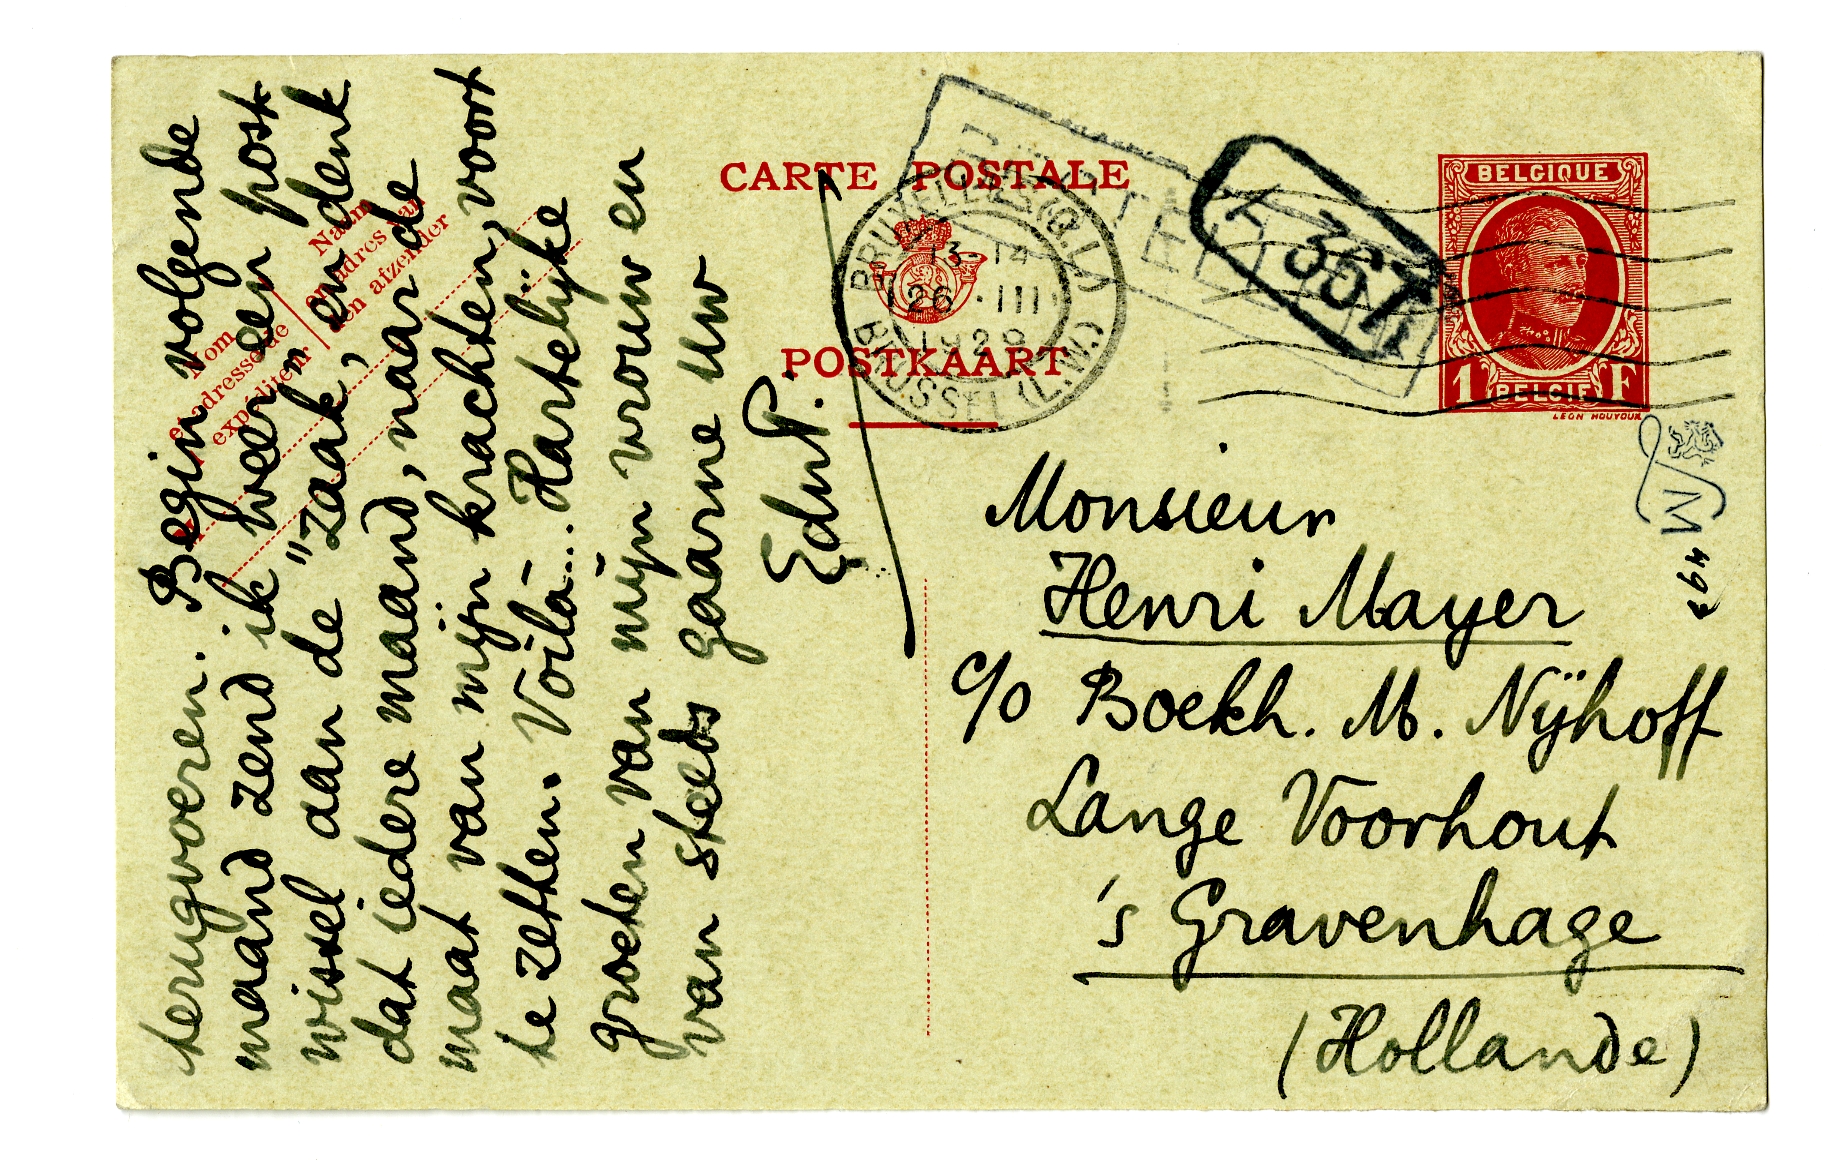 terugvoeren. Begin volgende
maand zend ik weer een post
wissel aan de "zaak", en denk
dat iedere maand, naar de
maat van mijn krachten, voort
te zetten. Voilà... Hartelijke
groeten van mijn vrouw en
van steeds gaarne uw
EduP.
Nom
et adresse de
expéditeur
Naam
en adres van
den afzender
CARTE POSTALE
POSTKAART
BRUXELLES (Q.L.)
13-14
26 III
1928
BRUSSEL (L.W.)
367
BELGIQUE
1 F
BELGIE
LEGN HOUYOUX
M
493
Monsieur
Henri Mayer
c/o Boekh. M. Nijhoff
Lange Voorhout
's Gravenhage
(Hollande)